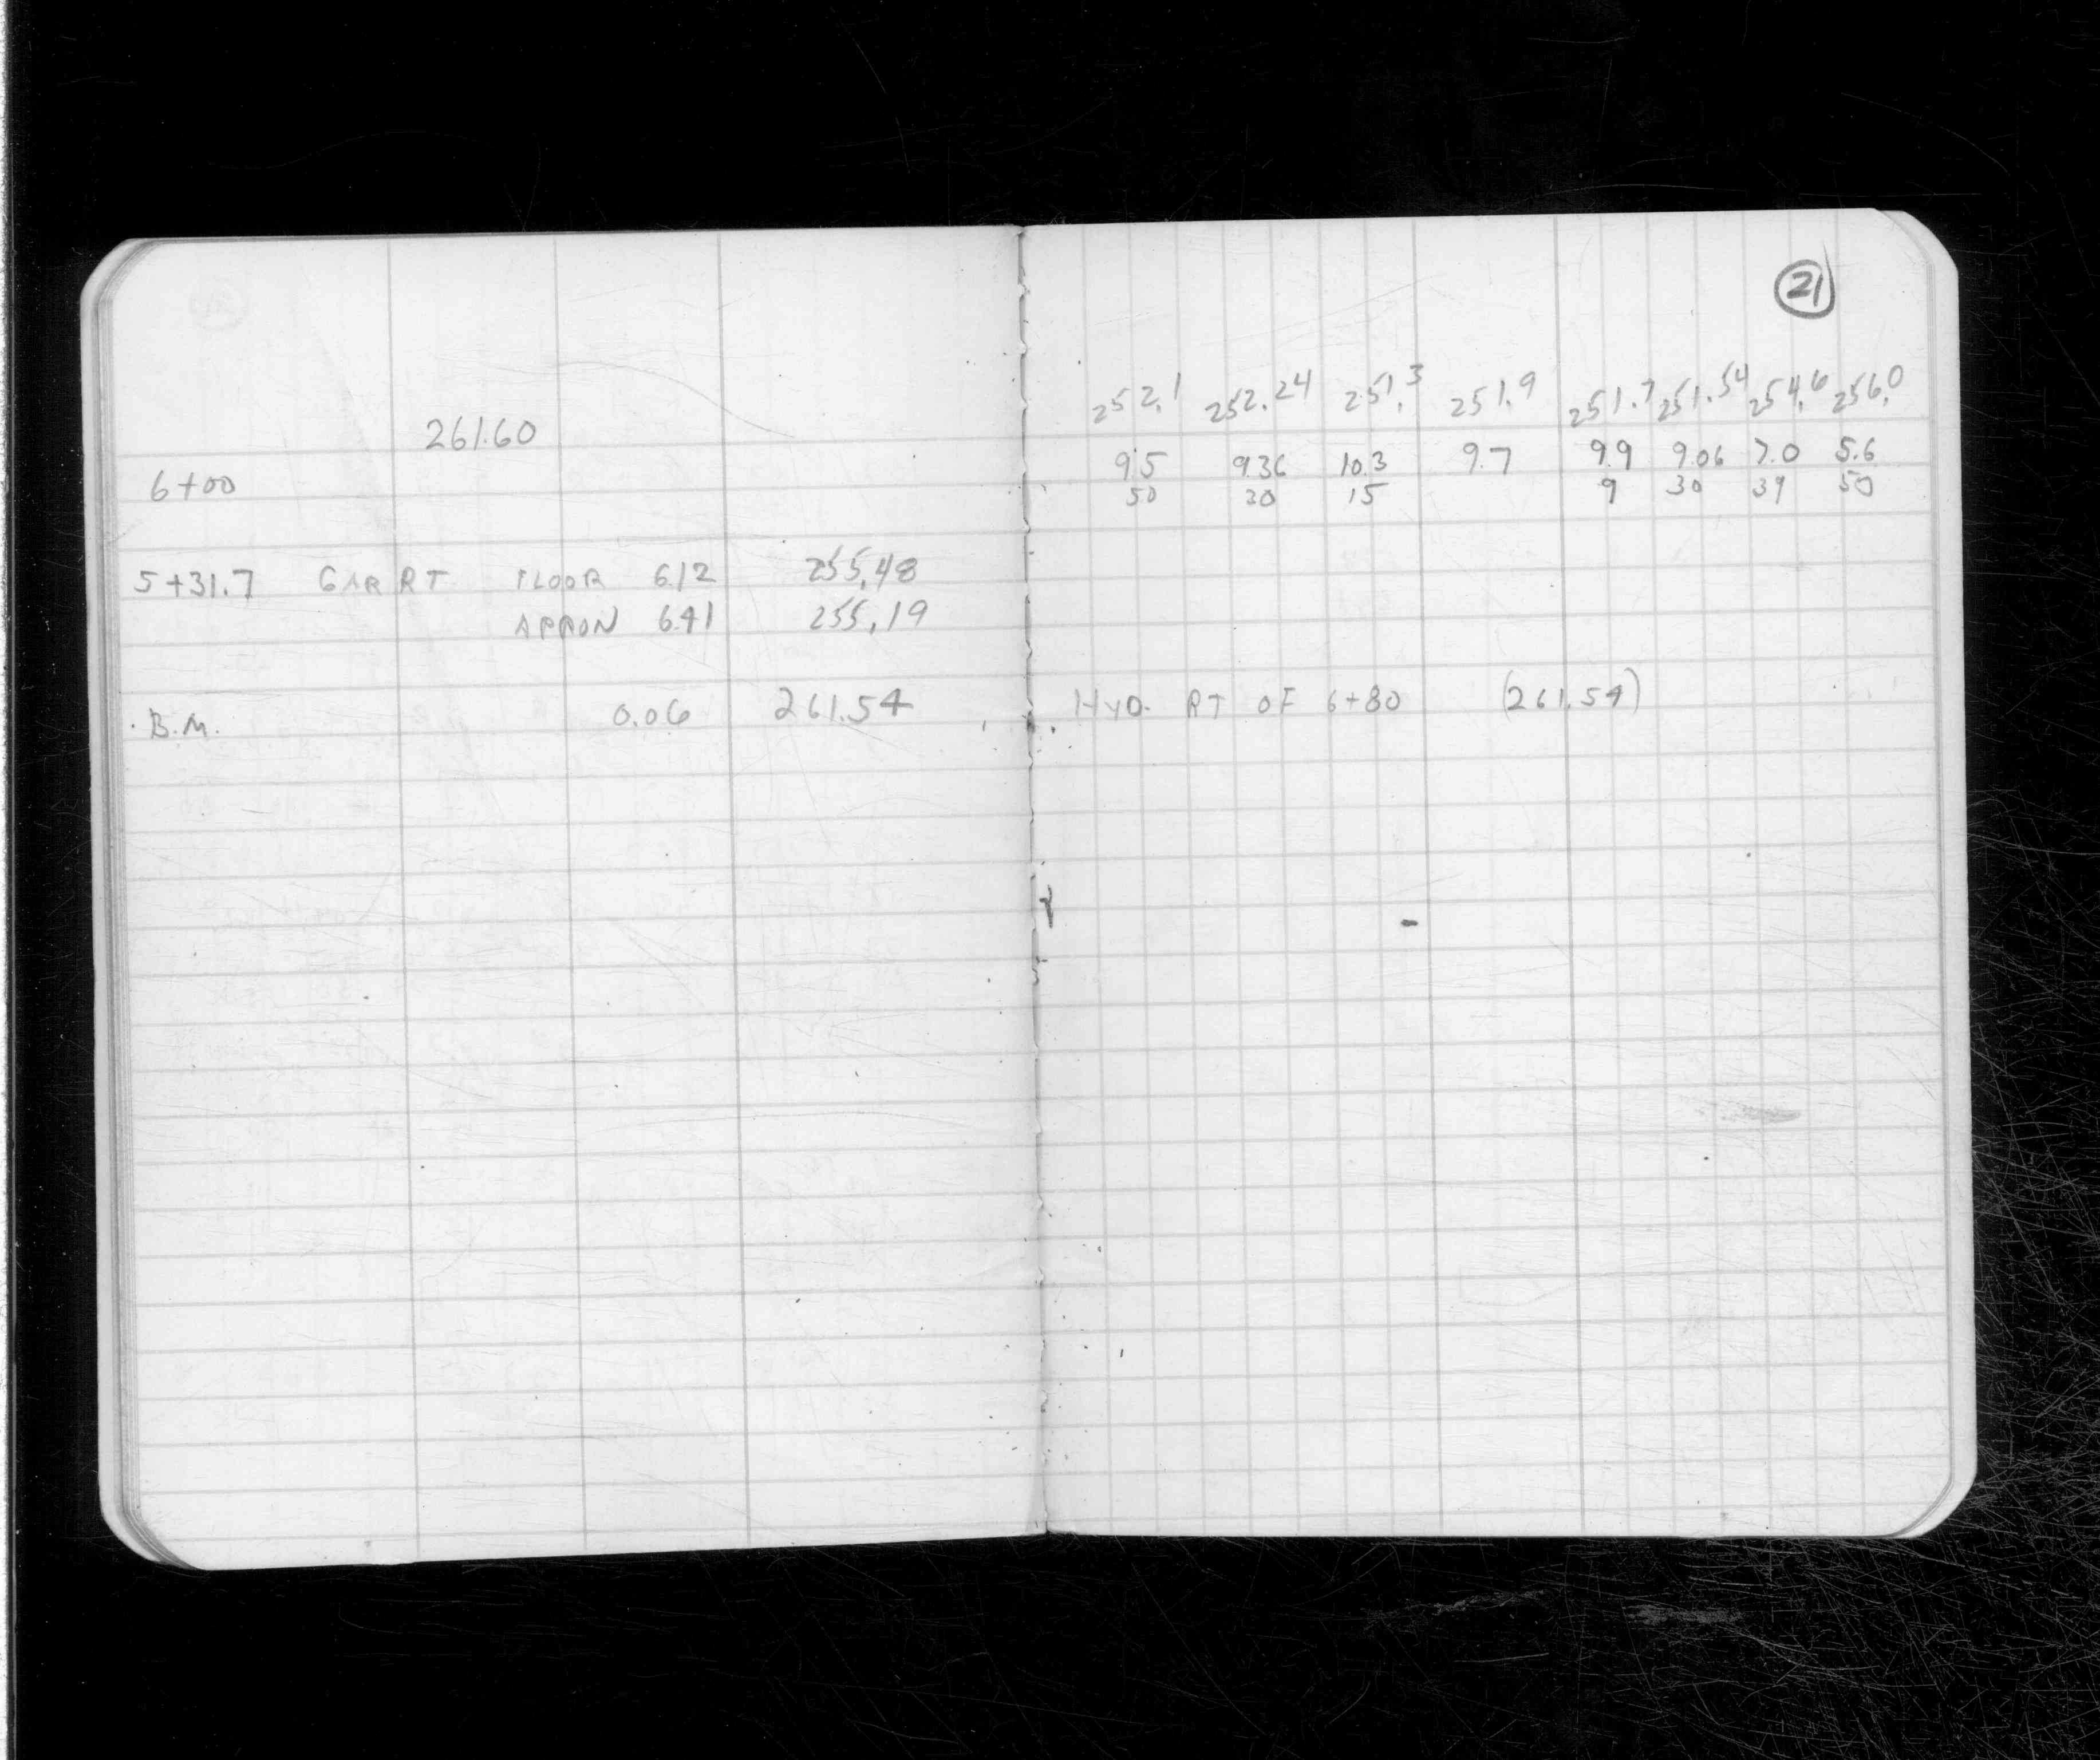 21
252.1 252.24 251.3 251.9 251.7 251.54 254.6 256.0
261.60
9.5 9.36 10.3 9.7 9.9 9.06 7.0 5.6
6+00
50 30 15 9 30 39 50
5+31.7 GAR RT FLOOR 6.12 255.48
APRON 6.41 255.19
B.M. 0.06 261.54 HYD. RT OF 6+80 (261.54)